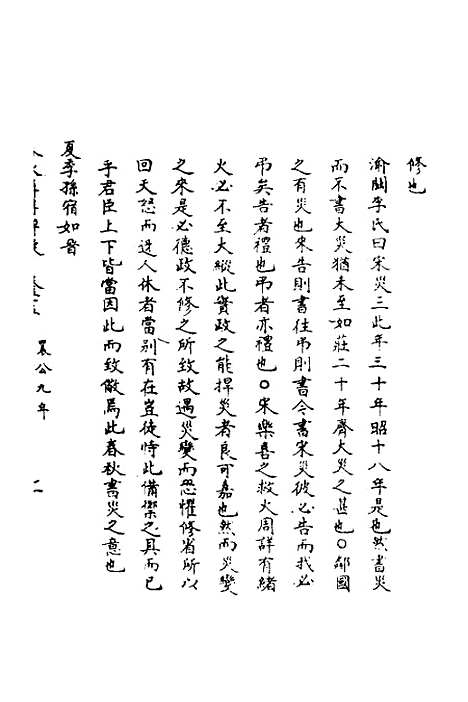 修也
渝關李氏曰宋災三此年三十年昭十八年是也然書災
而不書大災猶未至如莊二十年齊大災之甚也〇鄰國
之有災也來告則書往弔則書今書宋災彼必告而我必
弔矣告者禮也弔者亦禮也〇宋樂喜之救火周詳有緒
火必不至大縱此實政之能捍災者良可嘉也然而災變
之來是必德政不修之所致故遇災變而恐懼修省所以
回天怒而迓人休者當別有在豈徒恃此備禦之具而已
乎君臣上下皆當因此而致儆焉此春秋書災之意也
夏季孫宿如晉
襄公九年